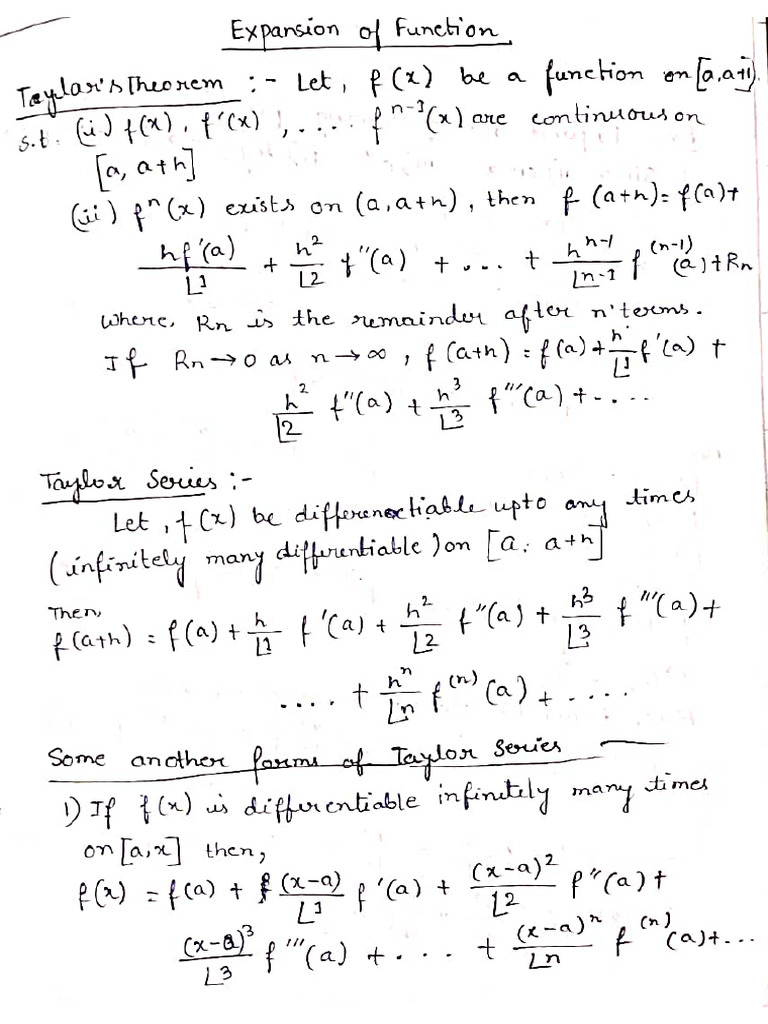 Expansion of Function
Taylar's Theorem :- Let, f(x) be a function on [a, a+h].
s.t. (i) f(x), f'(x), .... f^{n-1}(x) are continuous on
[a, a+h]
(ii) f^n(x) exists on (a, a+h), then f(a+h) = f(a)+
hf'(a)/⌊1 + h²/⌊2 f''(a) + ... + h^{n-1}/⌊n-1 f^{(n-1)}(a) + Rn
where, Rn is the remainder after n' terms.
If Rn → 0 as n → ∞, f(a+h) = f(a) + h/⌊1 f'(a) +
h²/⌊2 f''(a) + h³/⌊3 f'''(a) + ....
Taylor Series :-
Let, f(x) be differenctiable upto any times
(infinitely many differentiable) on [a, a+h]
Then,
f(a+h) = f(a) + h/⌊1 f'(a) + h²/⌊2 f''(a) + h³/⌊3 f'''(a) +
.... + h^n/⌊n f^{(n)}(a) + ....
Some another forms of Taylor Series
1) If f(x) is differentiable infinitely many times
on [a, x] then,
f(x) = f(a) + (x-a)/⌊1 f'(a) + (x-a)²/⌊2 f''(a) +
(x-a)³/⌊3 f'''(a) + .... + (x-a)^n/⌊n f^{(n)}(a) + ...